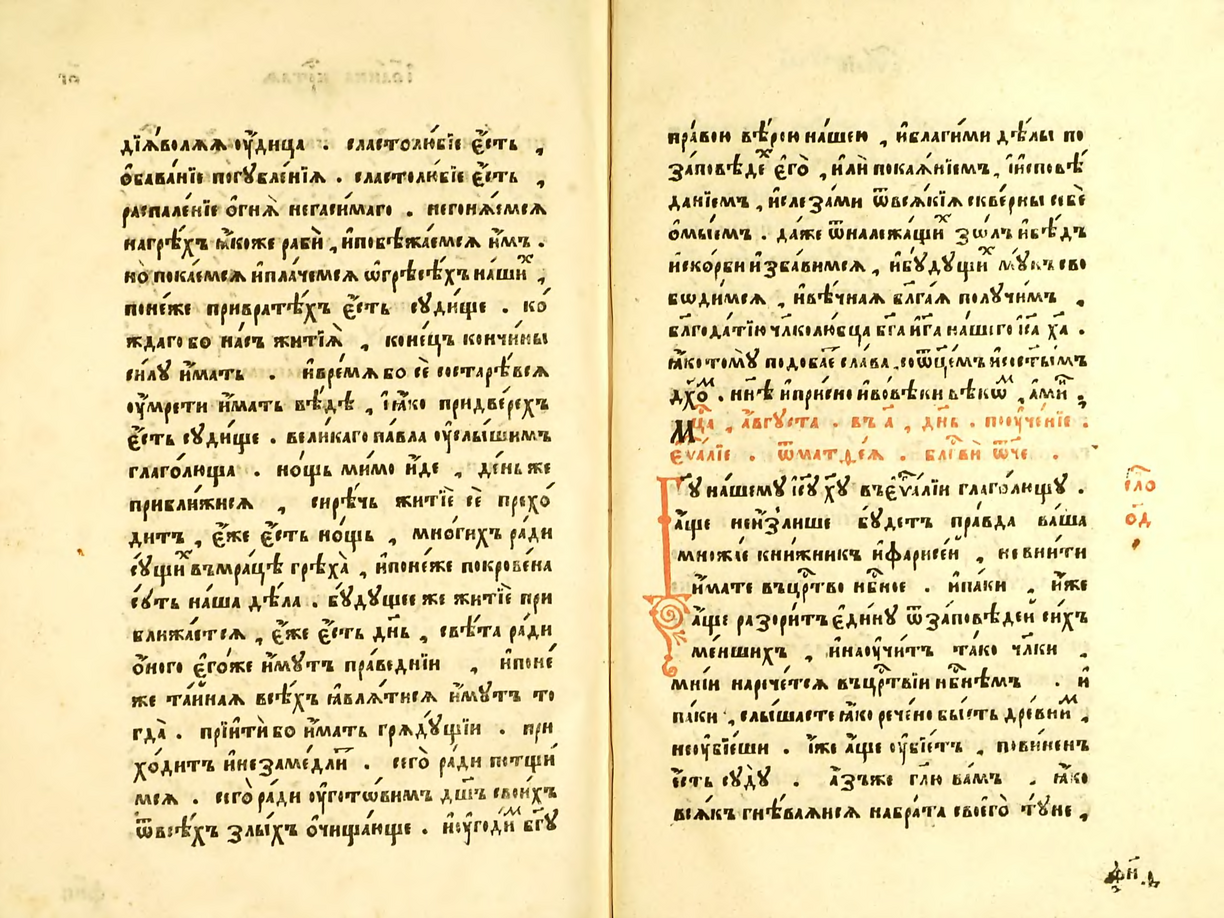 дїѧ́волѧѧ ᲂу҆́дица . сластолю́бїе є҆́сть ,
ѻ҆бава́нїе погꙋбле́нїѧ . сластолю́бїе є҆́сть ,
распале́нїе ѻ҆гнѧ̀ негаси́маго . негоню́емсѧ
нагрѣ́хъ ꙗ҆́коже рабѝ , и҆побѣжа́емсѧ и҆́мъ .
но̀ пока́емсѧ и҆пла́чемсѧ ѡ҆грѣсѣ́хъ на́ши́хъ ,
поне́же привратѣ́хъ є҆́сть сꙋди́ще . ко́
ждаго бо на́съ житїѧ̀ , коне́цъ кончи́ны
си́лꙋ и҆́мать . и҆вре́мѧ бо сѐ состарѣ́всѧ
ᲂу҆мре́ти и҆́мать вѣ́дѣ , ꙗ҆́ко придве́рехъ
є҆́сть сꙋди́ще . вели́каго па́вла ᲂу҆слы́шимъ
глаго́люща . но́щь мимо и҆́де , де́нь же
прибли́жисѧ , си́рѣчь житїѐ сѐ прехо́
дитъ , є҆́же є҆́сть но́щь , мно́гихъ ра́ди
сꙋ́щи́хъ въмра́цѣ грѣха̀ , и҆поне́же покрове́на
сꙋ́ть на́ша дѣ́ла . бꙋ́дꙋщее же житїѐ при
ближа́етсѧ , є҆́же є҆́сть дн҃ь , свѣ́та ра́ди
ѻ҆́ного є҆го́же и҆́мꙋтъ пра́веднїи , и҆поне́
же та́йнаѧ всѣ́хъ ꙗ҆влѧ́тисѧ и҆́мꙋтъ то
гда̀ . прїити́ бо и҆́мать грѧдꙋ́щїи . при
хо́дитъ и҆незаме́дли́тъ . сего̀ ра́ди потщи́
мсѧ . сего̀ ра́ди ᲂу҆гото́вимъ дш҃ъ свои́хъ
ѿвсѣ́хъ злы́хъ ѻ҆чища́юще . и҆ᲂу҆годи́мъ бг҃ꙋ
пра́вою вѣ́рою на́шею , и҆благи́ми дѣ́лы по
за́повѣдехъ є҆гѡ̀ , и҆лѝ покаѧ́нїемъ , и҆и҆сповѣ́
данїемъ , и҆слеза́ми ѿвсѧ́кїѧ скве́рны себѐ
ѻ҆мы́емъ . да́же ѿналежа́щи́хъ зо́лъ и҆бѣ́дъ
и҆ско́рби и҆зба́вимсѧ , и҆бꙋ́дꙋщи́хъ мꙋ́къ сво
бѡди́мсѧ , и҆вѣ́чнаѧ бл҃га́ѧ полꙋ́чимъ ,
бл҃года́тїю чл҃колю́бца бг҃а и҆гд҃а на́шего і҆с҃а х҃а .
ꙗ҆́ко томꙋ̀ подоба́етъ сла́ва , соѻ҆ц҃е́мъ и҆сост҃ы́мъ
дх҃омъ . нн҃ѣ и҆при́сно и҆во́вѣки вѣко́мъ , а҆ми́нь .
Мц҃а , а҆́вгꙋста . въ а҃ , дн҃ь . поᲂуче́нїе .
є҆ѵа́лїе . ѿматѳе́ѧ . бл҃гви́ ѻ҆́ч҃е .
Гдꙋ на́шемꙋ і҆с҃ꙋ х҃ꙋ въє҆ѵⷢ҇а́лїи глаго́лющꙋ .
а҆́ще неи҆зли́ше бꙋ́детъ пра́вда ва́ша
мно́жае кни́жникъ и҆фарисе́й , невни́ти
и҆́мате въцр҃тво нб҃ное . и҆па́ки , и҆́же
а҆́ще разори́тъ є҆ди́нꙋ ѿза́повѣдей си́хъ
ме́ншихъ , и҆наᲂу҆чи́тъ та́ко чл҃ки ,
мні́и нарече́тсѧ въцр҃твїи нб҃нѣмъ . и҆
па́ки , слы́шасте ꙗ҆́ко рече́но бы́сть дре́внимъ ,
неᲂу҆бїе́ши . и҆́же а҆́ще ᲂу҆бїе́тъ , пови́ненъ
є҆́сть сꙋдꙋ̀ . а҆́зъже гл҃ю ва́мъ . ꙗ҆́ко
всѧ́къ гнѣ́ваѧисѧ набра́та своего̀ тꙋ́не ,
сло
ѻ҃д
фн҃